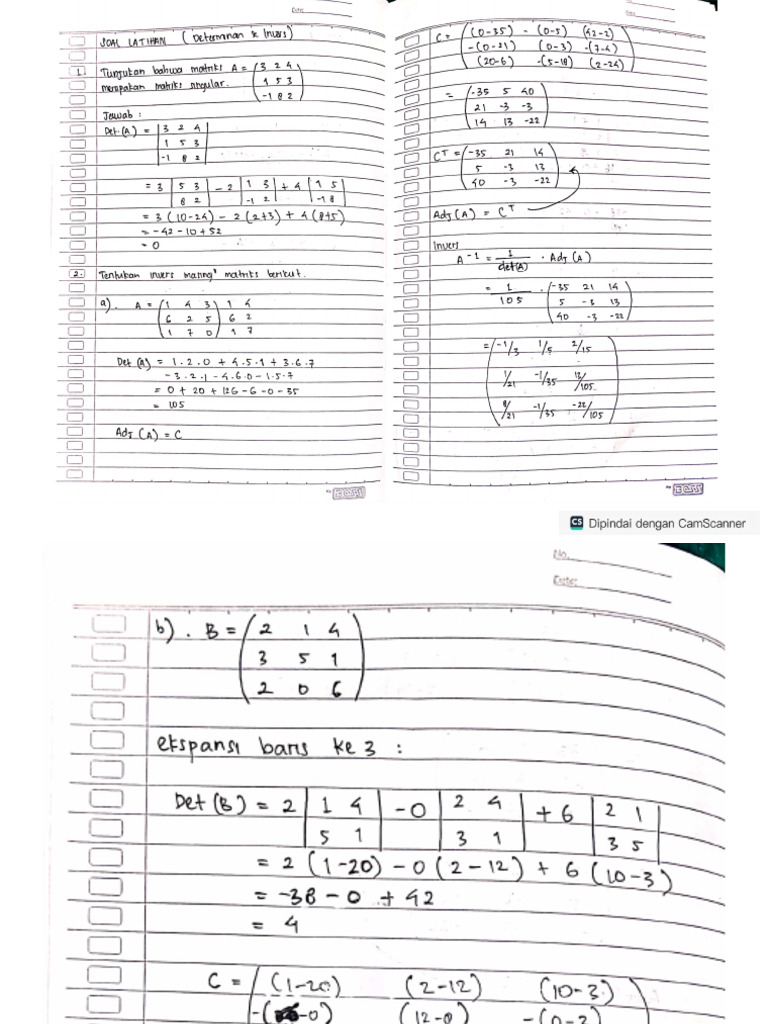 Date:
SOAL LATIHAN ( Determinan & Invers )
1. Tunjukan bahwa matriks A = (3 2 4
1 5 3
-1 8 2)
merupakan matriks singular.
Jawab :
Det (A) = |3 2 4|
|1 5 3|
|-1 8 2|
= 3 |5 3| - 2 |1 3| + 4 |1 5|
|8 2| |-1 2| |-1 8|
= 3 (10-24) - 2 (2+3) + 4 (8+5)
= -42 - 10 + 52
= 0
2. Tentukan invers masing² matriks berikut.
a). A = (1 4 3) 1 4
(6 2 5) 6 2
(1 7 0) 1 7
Det (A) = 1.2.0 + 4.5.1 + 3.6.7
- 3.2.1 - 4.6.0 - 1.5.7
= 0 + 20 + 126 - 6 - 0 - 35
= 105
Adj (A) = C
C = ((0-35) - (0-5) (42-2)
-(0-21) (0-3) -(7-4)
(20-6) -(5-18) (2-24))
= (-35 5 40
21 -3 -3
14 13 -22)
Cᵀ = (-35 21 14
5 -3 13
40 -3 -22)
Adj (A) = Cᵀ
Invers
A⁻¹ = 1/det(A) . Adj (A)
= 1/105 . (-35 21 14
5 -3 13
40 -3 -22)
= (-1/3 1/5 2/15
1/21 -1/35 13/105
8/21 -1/35 -22/105)
CS Dipindai dengan CamScanner
No.
Date:
b). B = (2 1 4
3 5 1
2 0 6)
ekspansi baris ke 3 :
Det (B) = 2 |1 4| - 0 |2 4| + 6 |2 1|
|5 1| |3 1| |3 5|
= 2 (1-20) - 0 (2-12) + 6 (10-3)
= -38 - 0 + 42
= 4
C = ((1-20) (2-12) (10-3)
-( -0) (12-0) -(0-2)